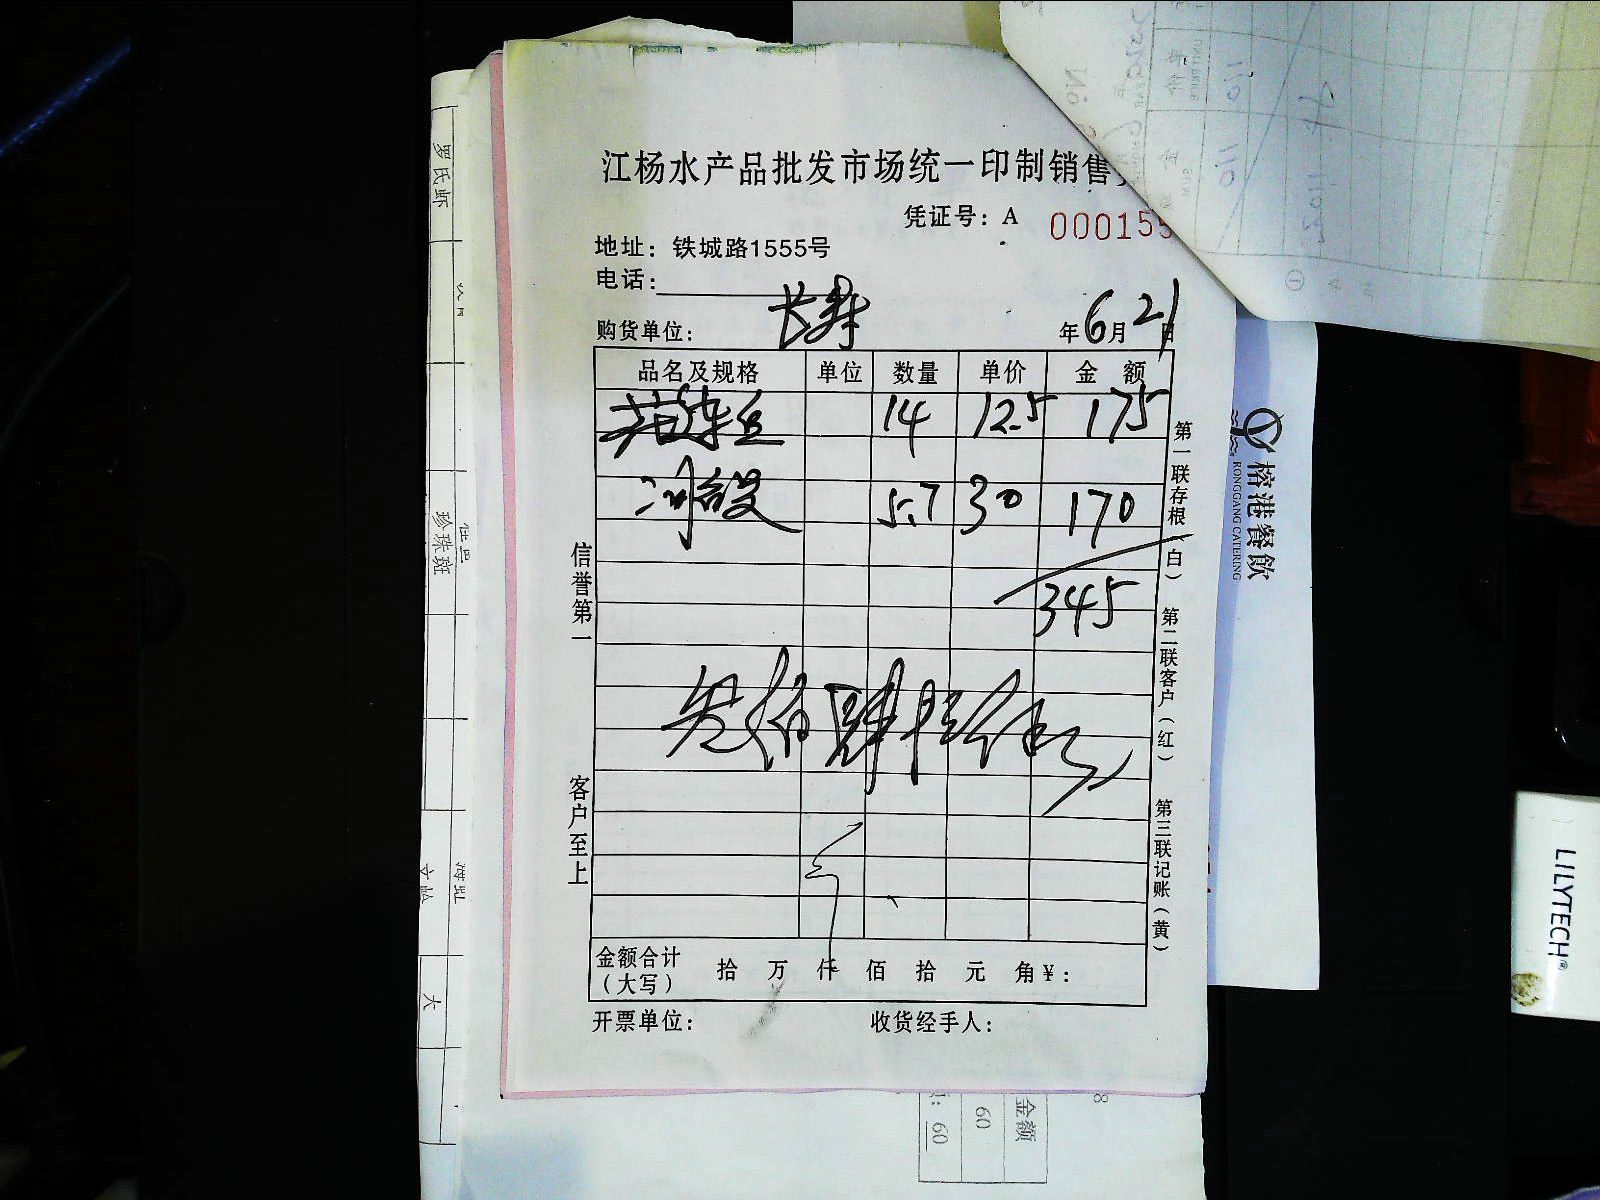 江杨水产品批发市场统一印制销售
凭证号：A 000155
地址：铁城路1555号
电话：
购货单位： 长寿 年6月21日
品名及规格 单位 数量 单价 金 额
14 12.5 175
5.7 30 170
345
叁佰肆拾伍元
金额合计（大写） 拾 万 仟 佰 拾 元 角¥：
开票单位： 收货经手人：
信誉第一
客户至上
第一联存根（白） 第二联客户（红） 第三联记账（黄）
罗氏虾
珍珠斑
大
榕港餐飲
RONGGANG CATERING
LILYTECH®
金额
60
60